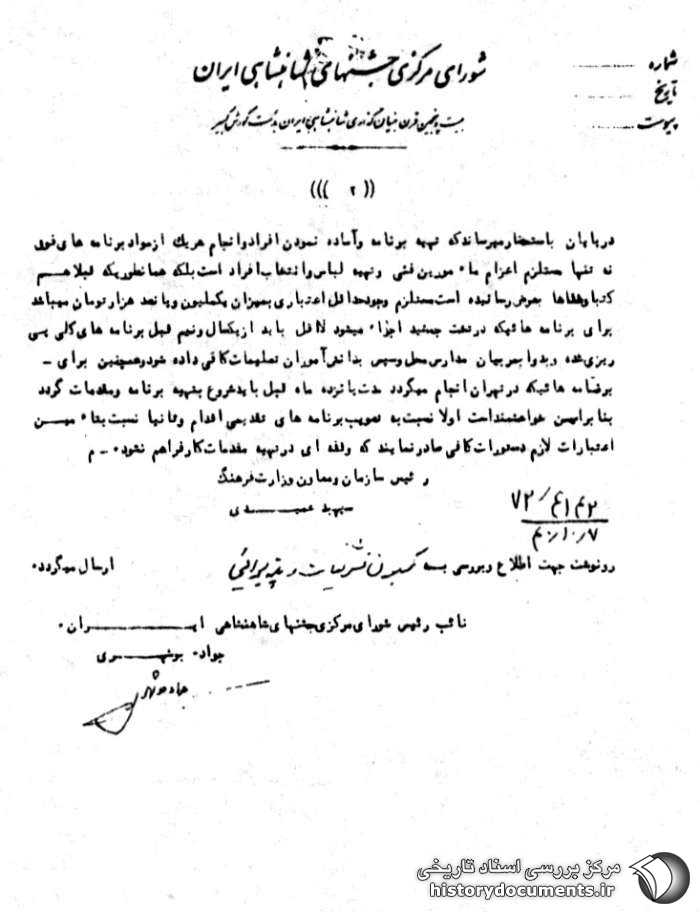 شورای مرکزی جشنهای شاهنشاهی ایران
شماره
تاریخ
پیوست
بیست و پنجمین قرن بنیان گذاری شاهنشاهی ایران بدست کورش کبیر
(( ۲ )))
درپایان باستحضار میرساند که تهیه برنامه وآماده نمودن افراد وانجام هریك ازمواد برنامه های فوق
نه تنها مستلزم اعزام ماءمورین فنی وتهیه لباس وانتخاب افراد است بلکه همانطوریکه قبلا هم
کتبا وشفاها بعرض رسانیده است مستلزم وجود حداقل اعتباری بمیزان یکملیون وپانصد هزارتومان میباشد
برای برنامه هائیکه درتخت جمشید اجراء میشود لااقل باید ازیکسال ونیم قبل برنامه های کلی پی
ریزی شده وبدوا بمربیان مدارس محل وسپس بدانش آموزان تعلیمات کافی داده شود وهمچنین برای ـ
برنامه هائیکه درتهران انجام میگردد مدت پانزده ماه قبل باید شروع بتهیه برنامه ومقدمات گردد
بنابراین خواهشمند است اولا نسبت به تصویب برنامه های تقدیمی اقدام وثانیا نسبت بتاءمین
اعتبارات لازم دستورات کافی صادرنمایند که وقفه ای درتهیه مقدمات کار فراهم نشود۰ ـ م
رئیس سازمان ومعاون وزارت فرهنگ
سپهبد
۷۲/۴۱۴۲
۴۰/۱۰/۷
رونوشت جهت اطلاع وبررسی بسه کمیسیون تشریفات و پذیرائی ارسال میگردد۰
نائب رئیس شورای مرکزی جشنهای شاهنشاهی ایران۰
جواد۰ بوشهری
مرکز بررسی اسناد تاریخی
historydocuments.ir